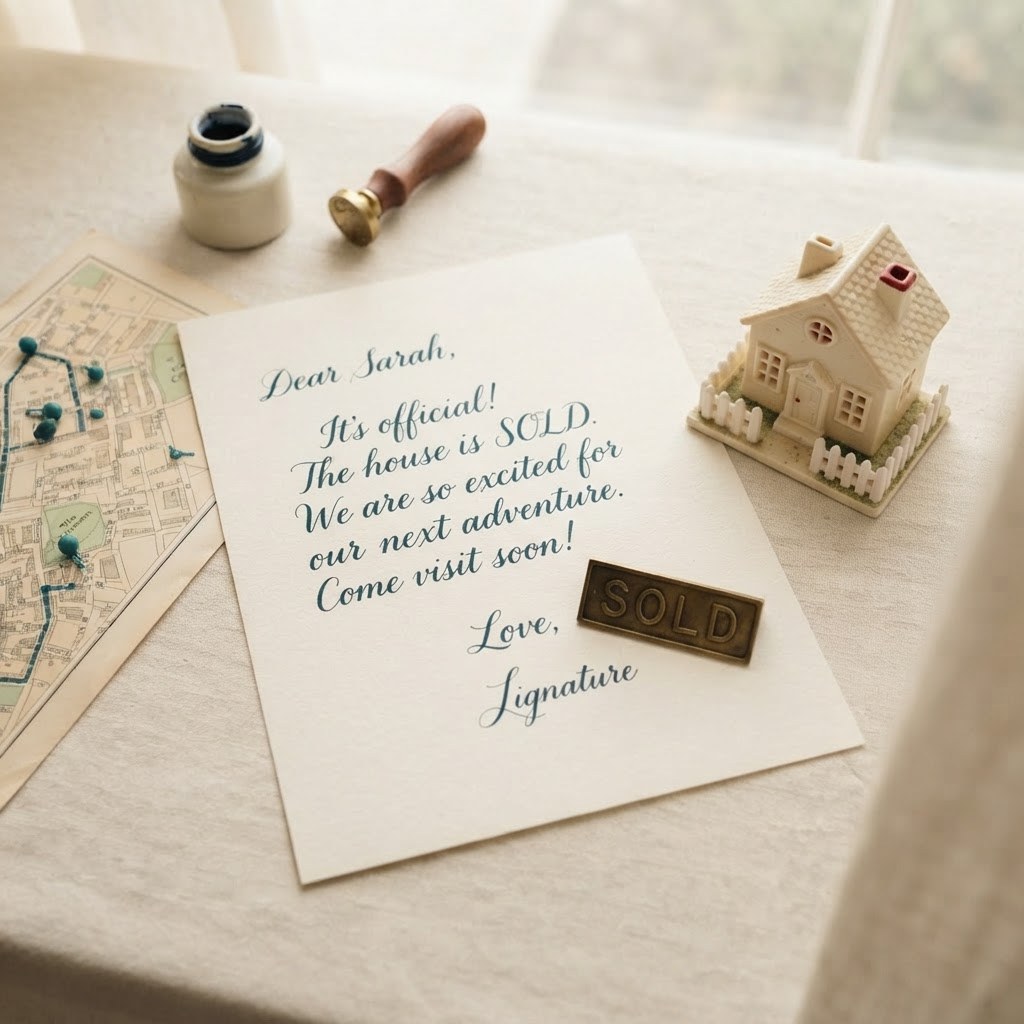 Dear Sarah,
It's official!
The house is SOLD.
We are so excited for
our next adventure.
Come visit soon!
Love,
Signature
SOLD